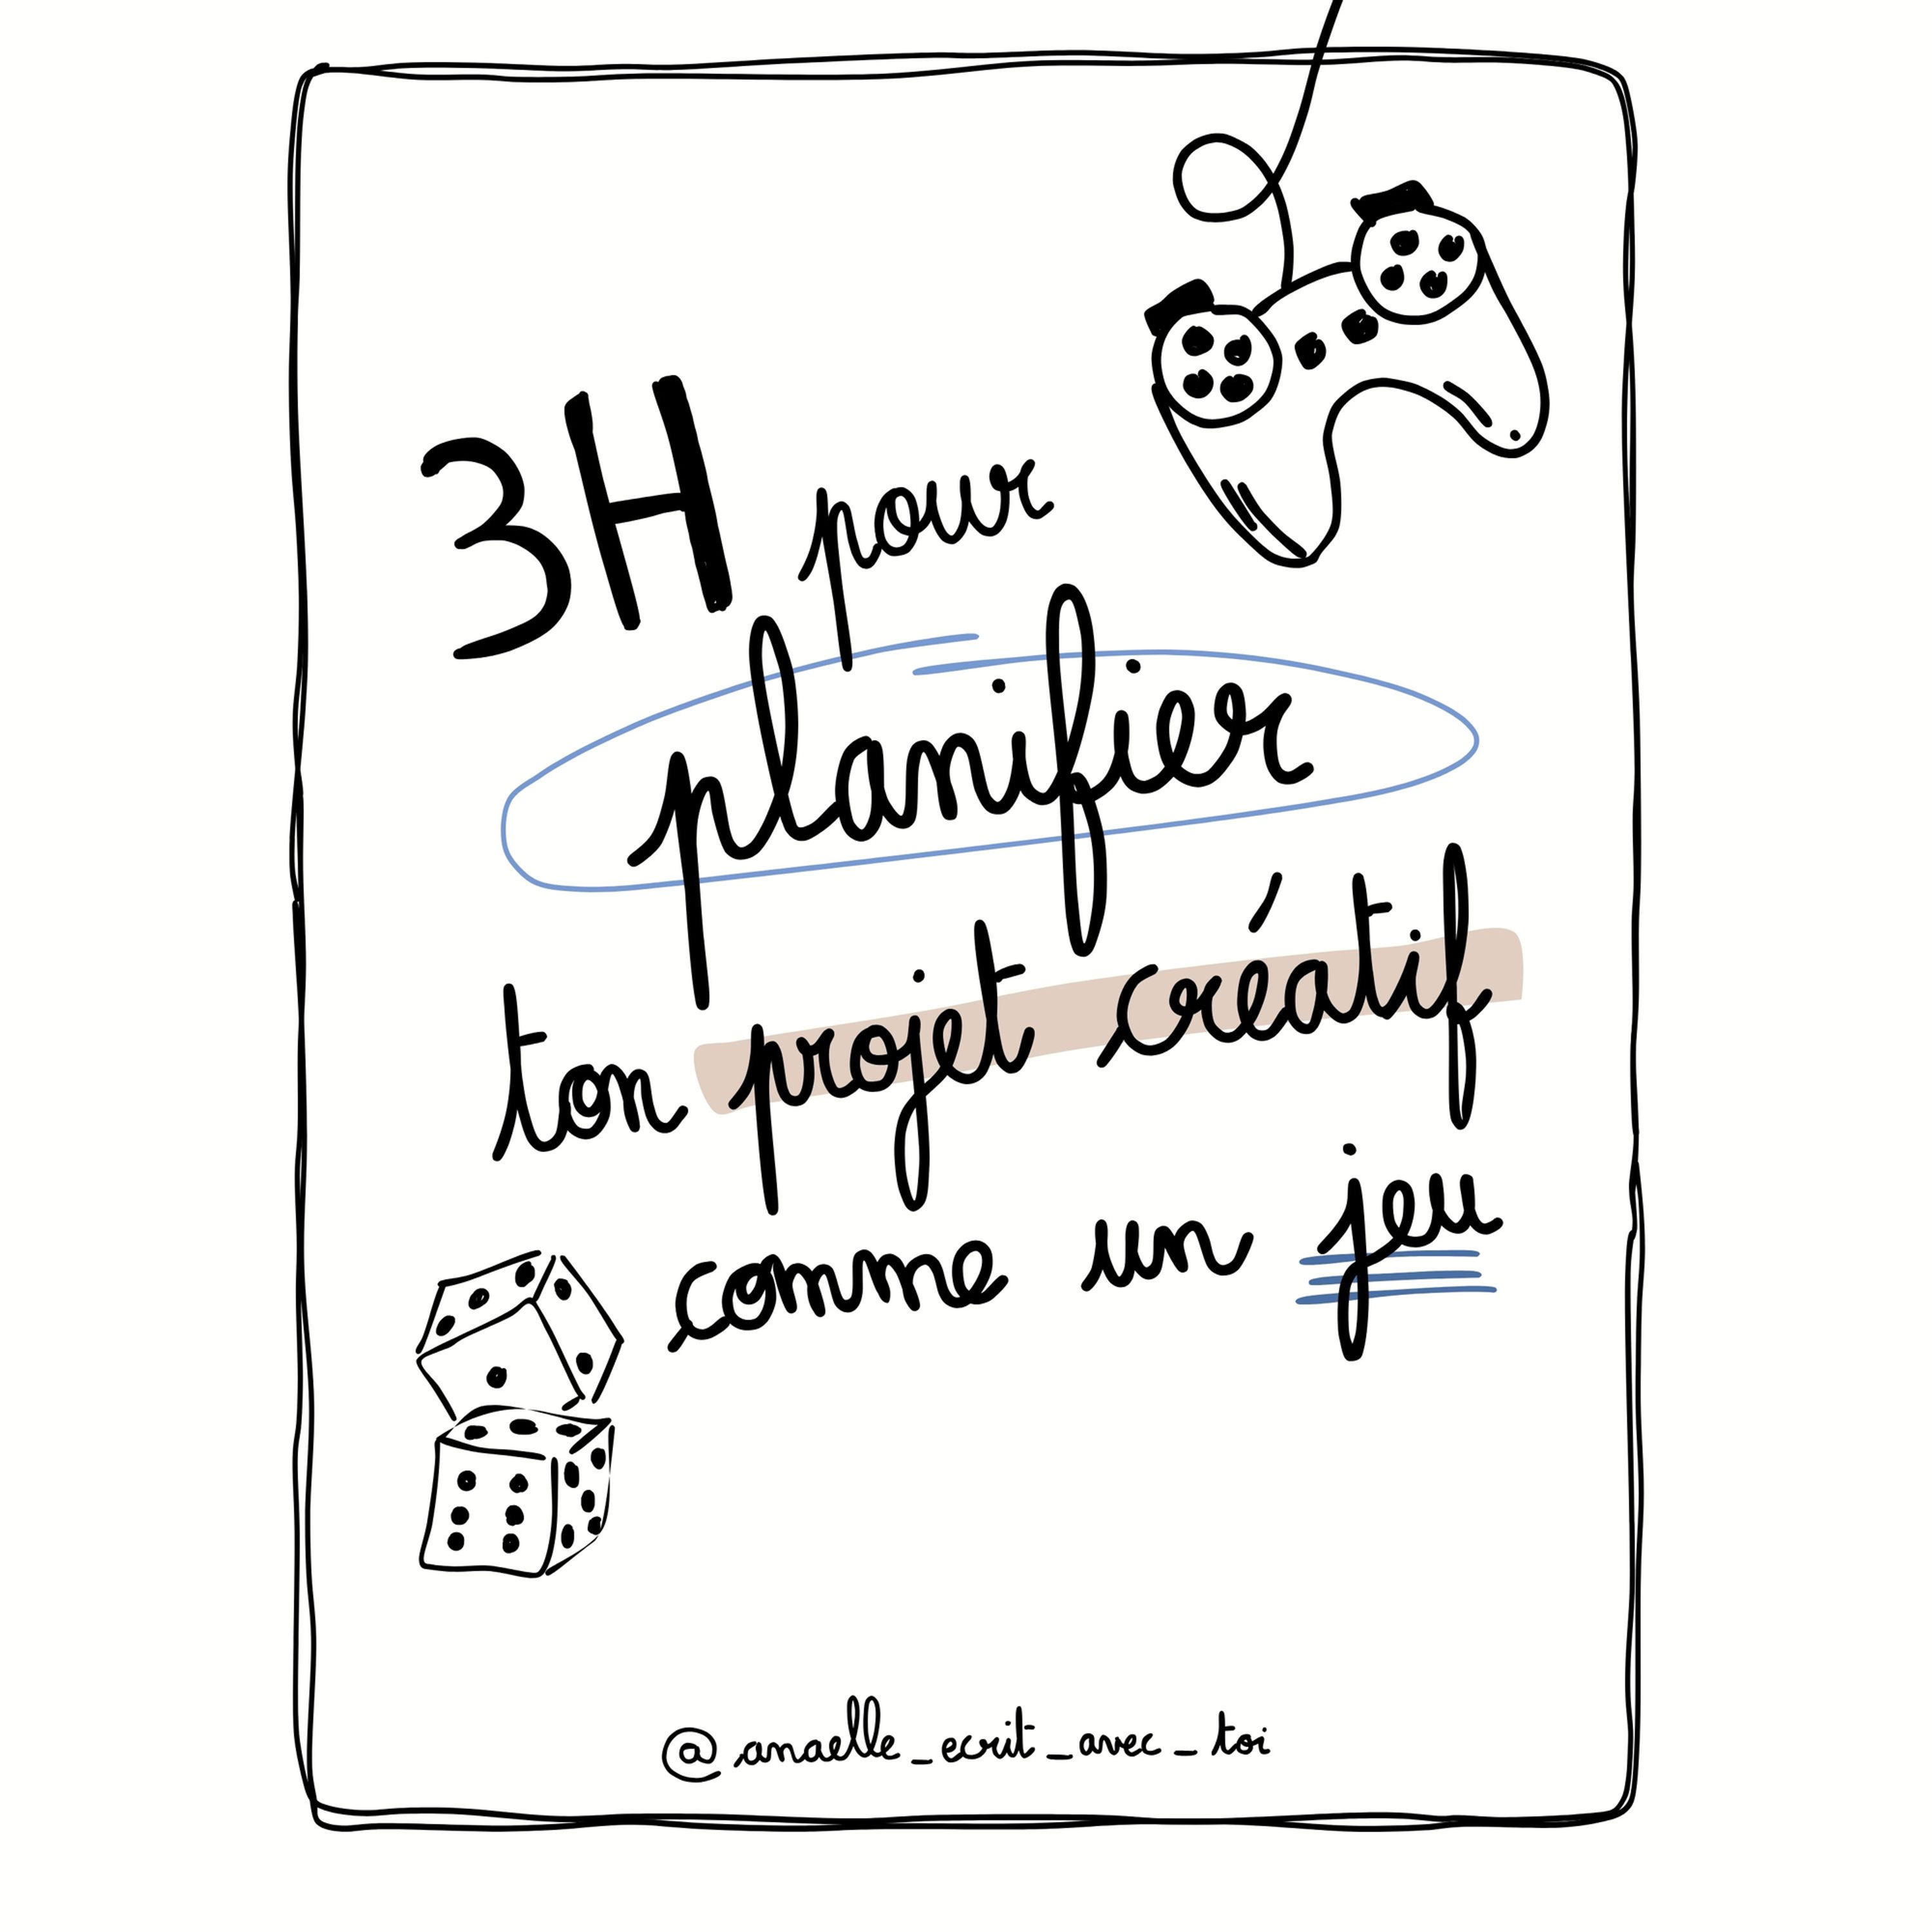 3H pour
planifier
ton projet créatif
comme un jeu
@amaelle_ecrit_avec_toi